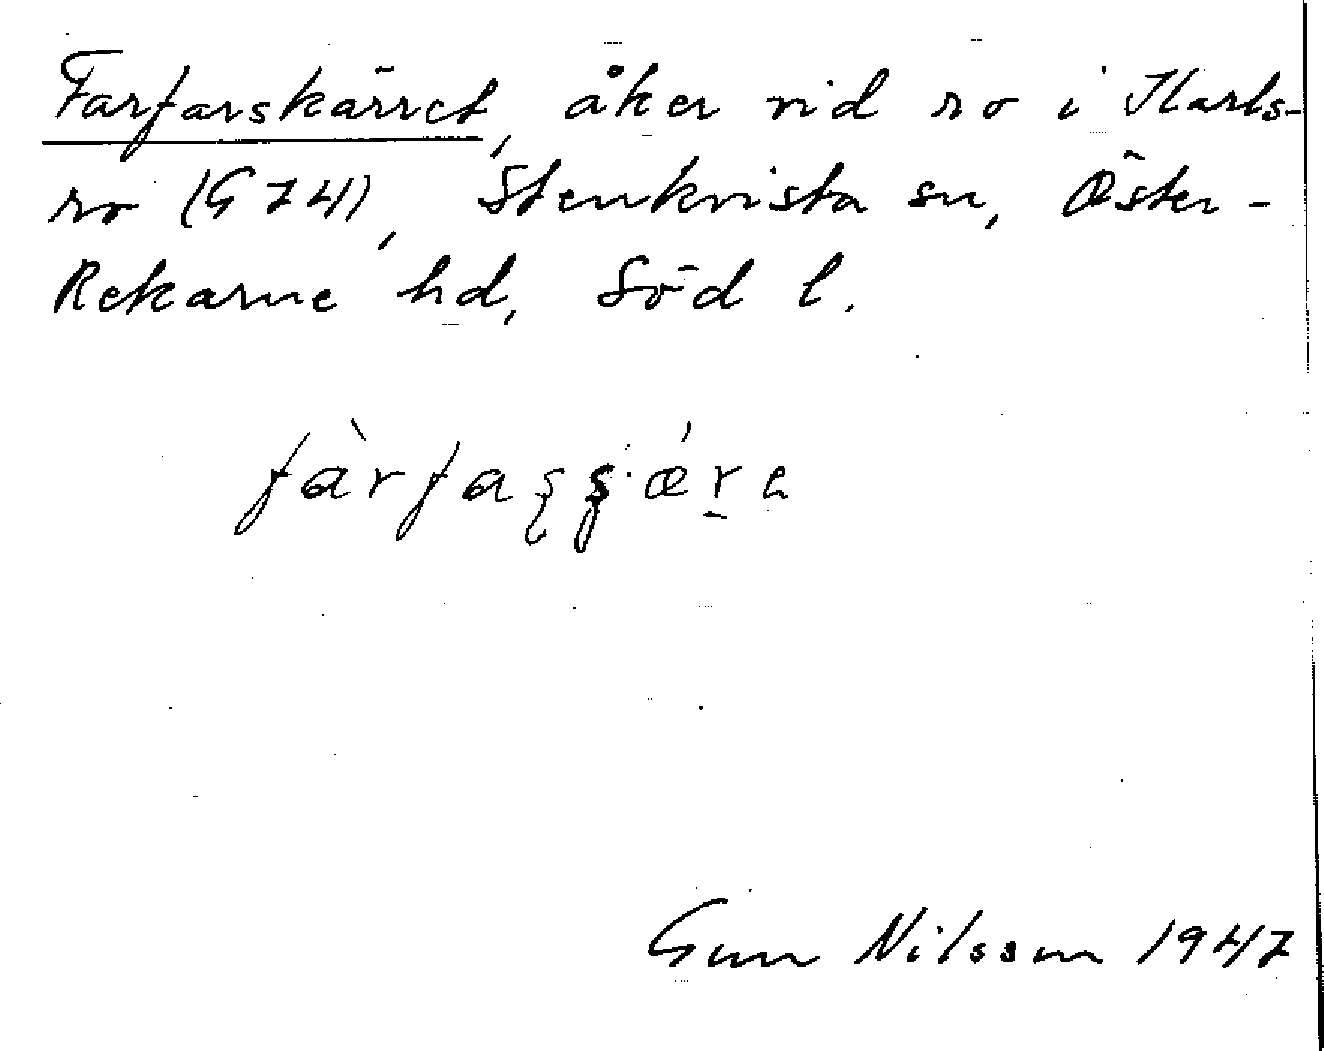 Farfarskärret, åker vid ro i Karls-
ro (G 74), Stenkvista sn, Öster-
Rekarne hd, Söd l.
Gun Nilsson 1947